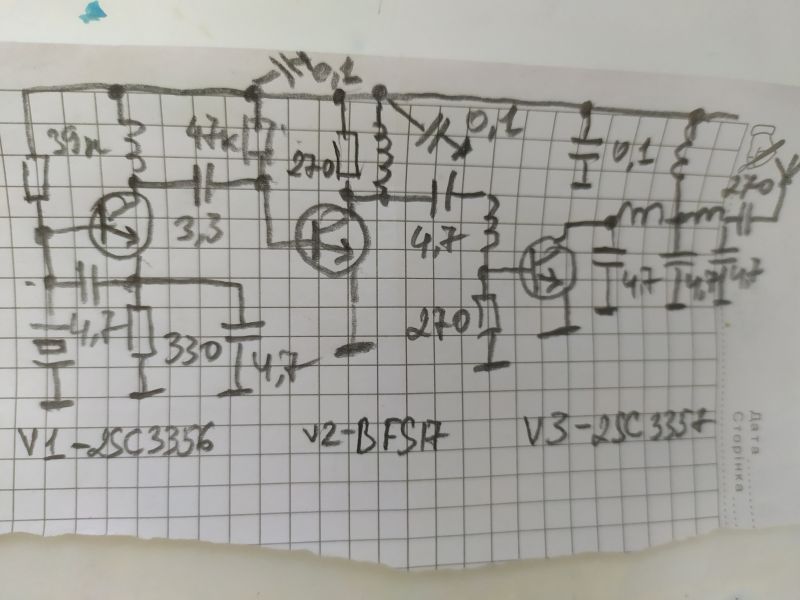 0,1
39к
47к
270
0,1
0,1
270
3,3
4,7
4,7
4,7
4,7
4,7
330
4,7
270
V1-2SC3356
V2-BFS17
V3-2SC3357
Дата
Сторінка